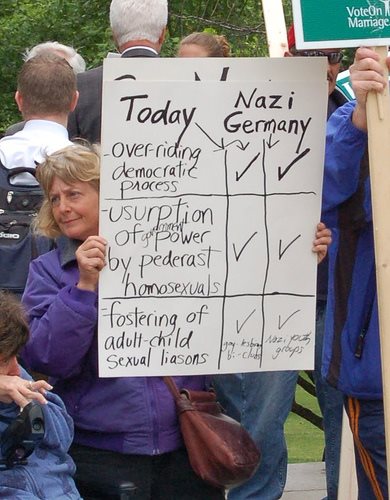 VoteOn
Marriage
Today
Nazi
Germany
-over-riding
democratic
process
-usurption
of government power
by pederast
homosexuals
-fostering of
adult-child
sexual liasons
gay-lesbian
bi-clubs
Nazi youth
groups